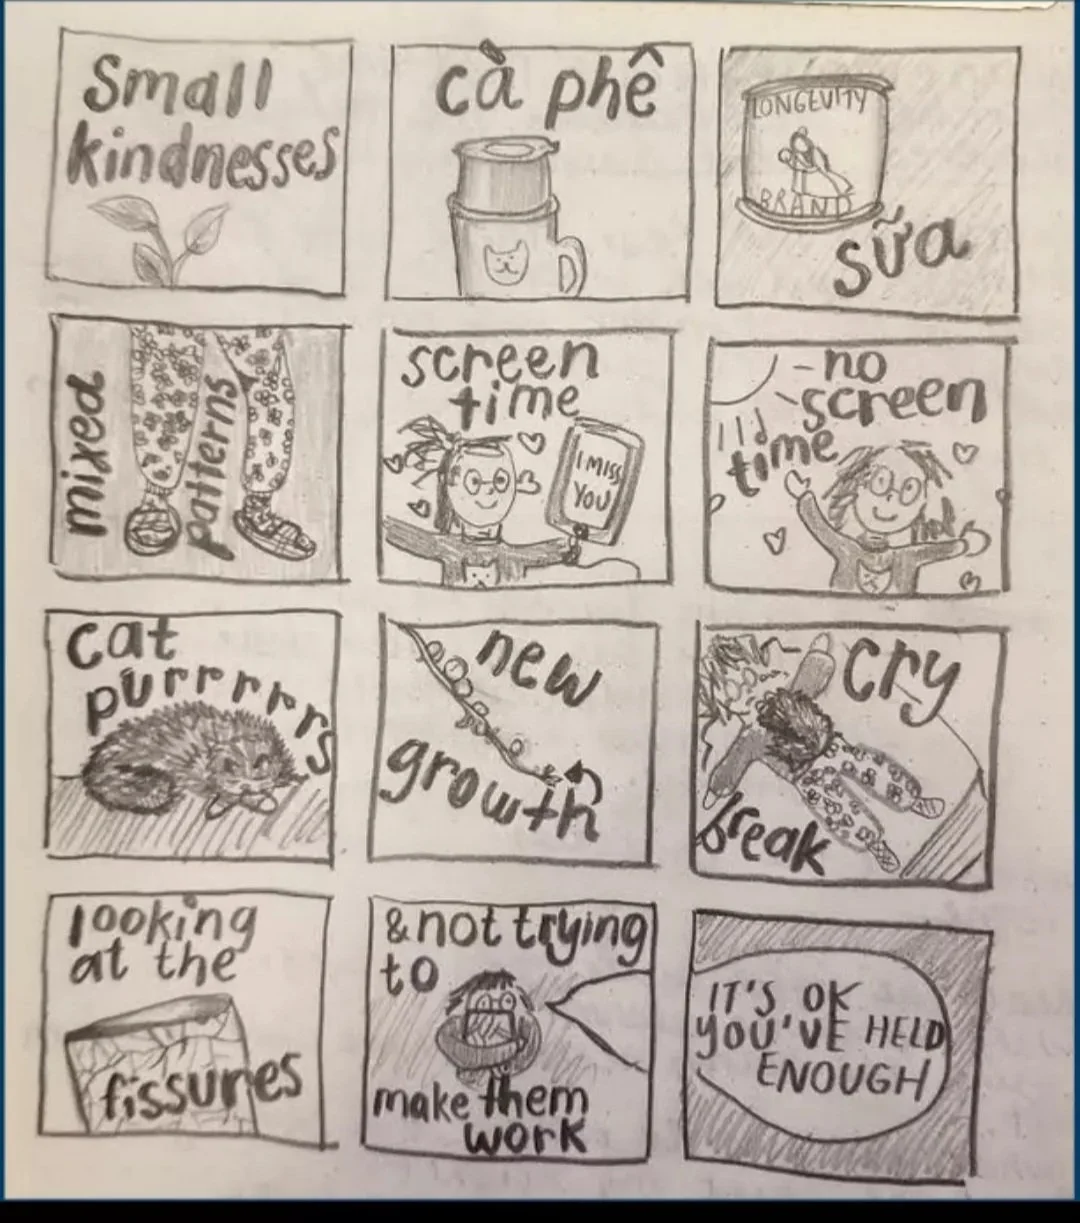 Small
kindnesses
cà phê
LONGEVITY
BRAND
sữa
mixed
patterns
screen
time
I MISS
YOU
no
screen
time
cat
purrrrrs
new
growth
cry
break
looking
at the
fissures
& not trying
to
make them
work
IT'S OK
YOU'VE HELD
ENOUGH